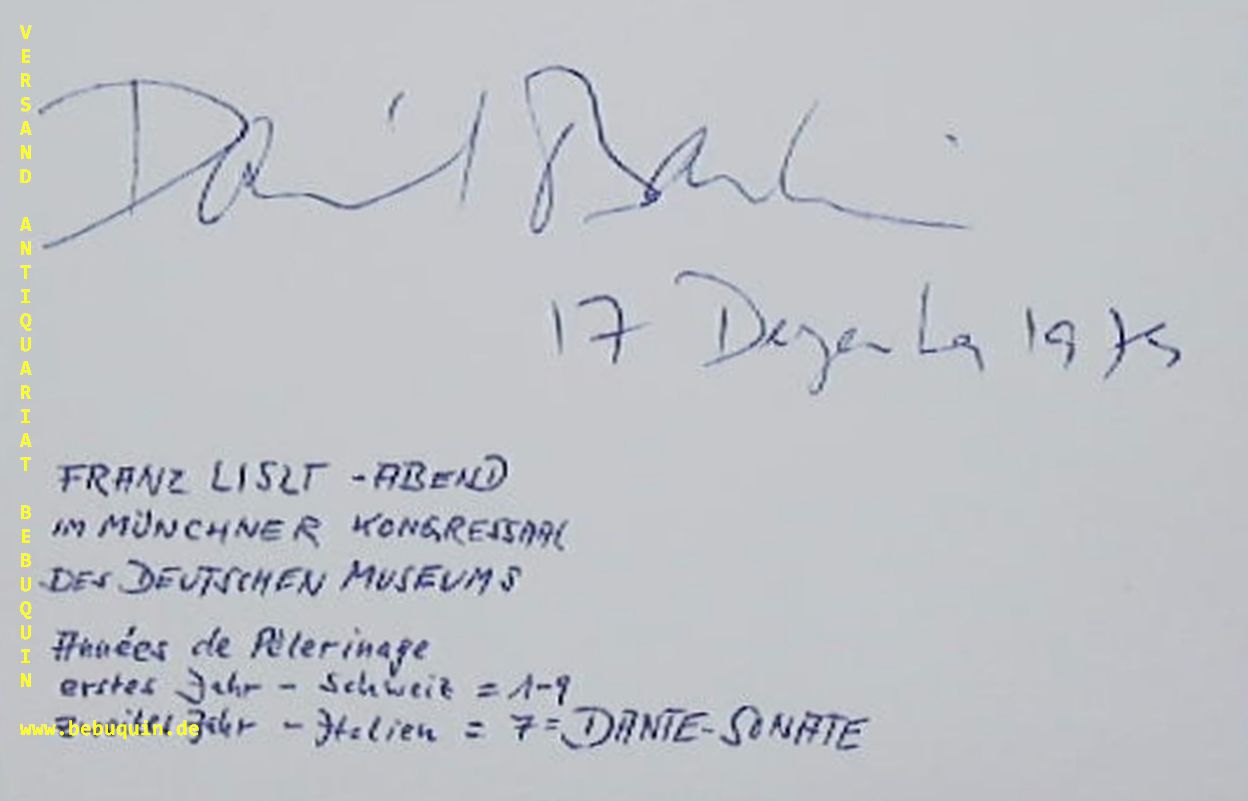 Daniel
17 Dezember 1975
FRANZ LISZT -ABEND
IM MÜNCHNER KONGRESSAAL
DES DEUTSCHEN MUSEUMS
Années de Pèlerinage
erstes Jahr - Schweiz = 1-9
Jahr - Italien = 7 = DANTE-SONATE
VERSAND ANTIQUARIAT BEBUQUIN
www.bebuquin.de